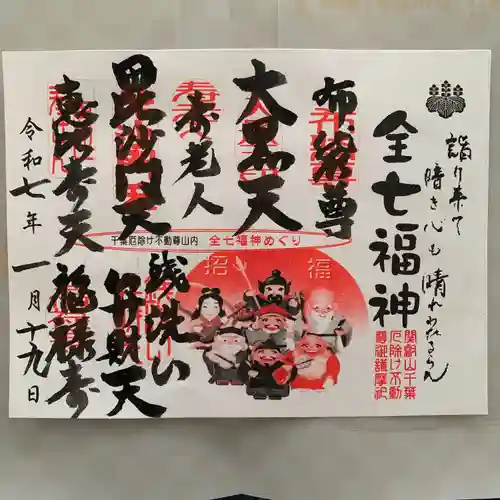 詣り来て
暗き心も
晴れわたるらん
全七福神
関劔山千葉
厄除け不動
尊御護摩祀
布袋尊
大黒天
寿老人
毘沙門天
恵比寿天
千葉厄除け不動尊山内 全七福神めぐり
招
福
銭洗い
弁財天
福禄寿
令和七年
一月十九日